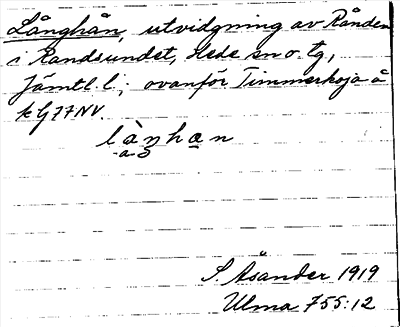 Långhån, utvidgning av Rånden
i Randsundet, Hede sn o. tg,
Jämtl. l.; ovanför Timmerkoja å
k G77NV.
lànhan
S. Åsander 1919
Ulma 755:12